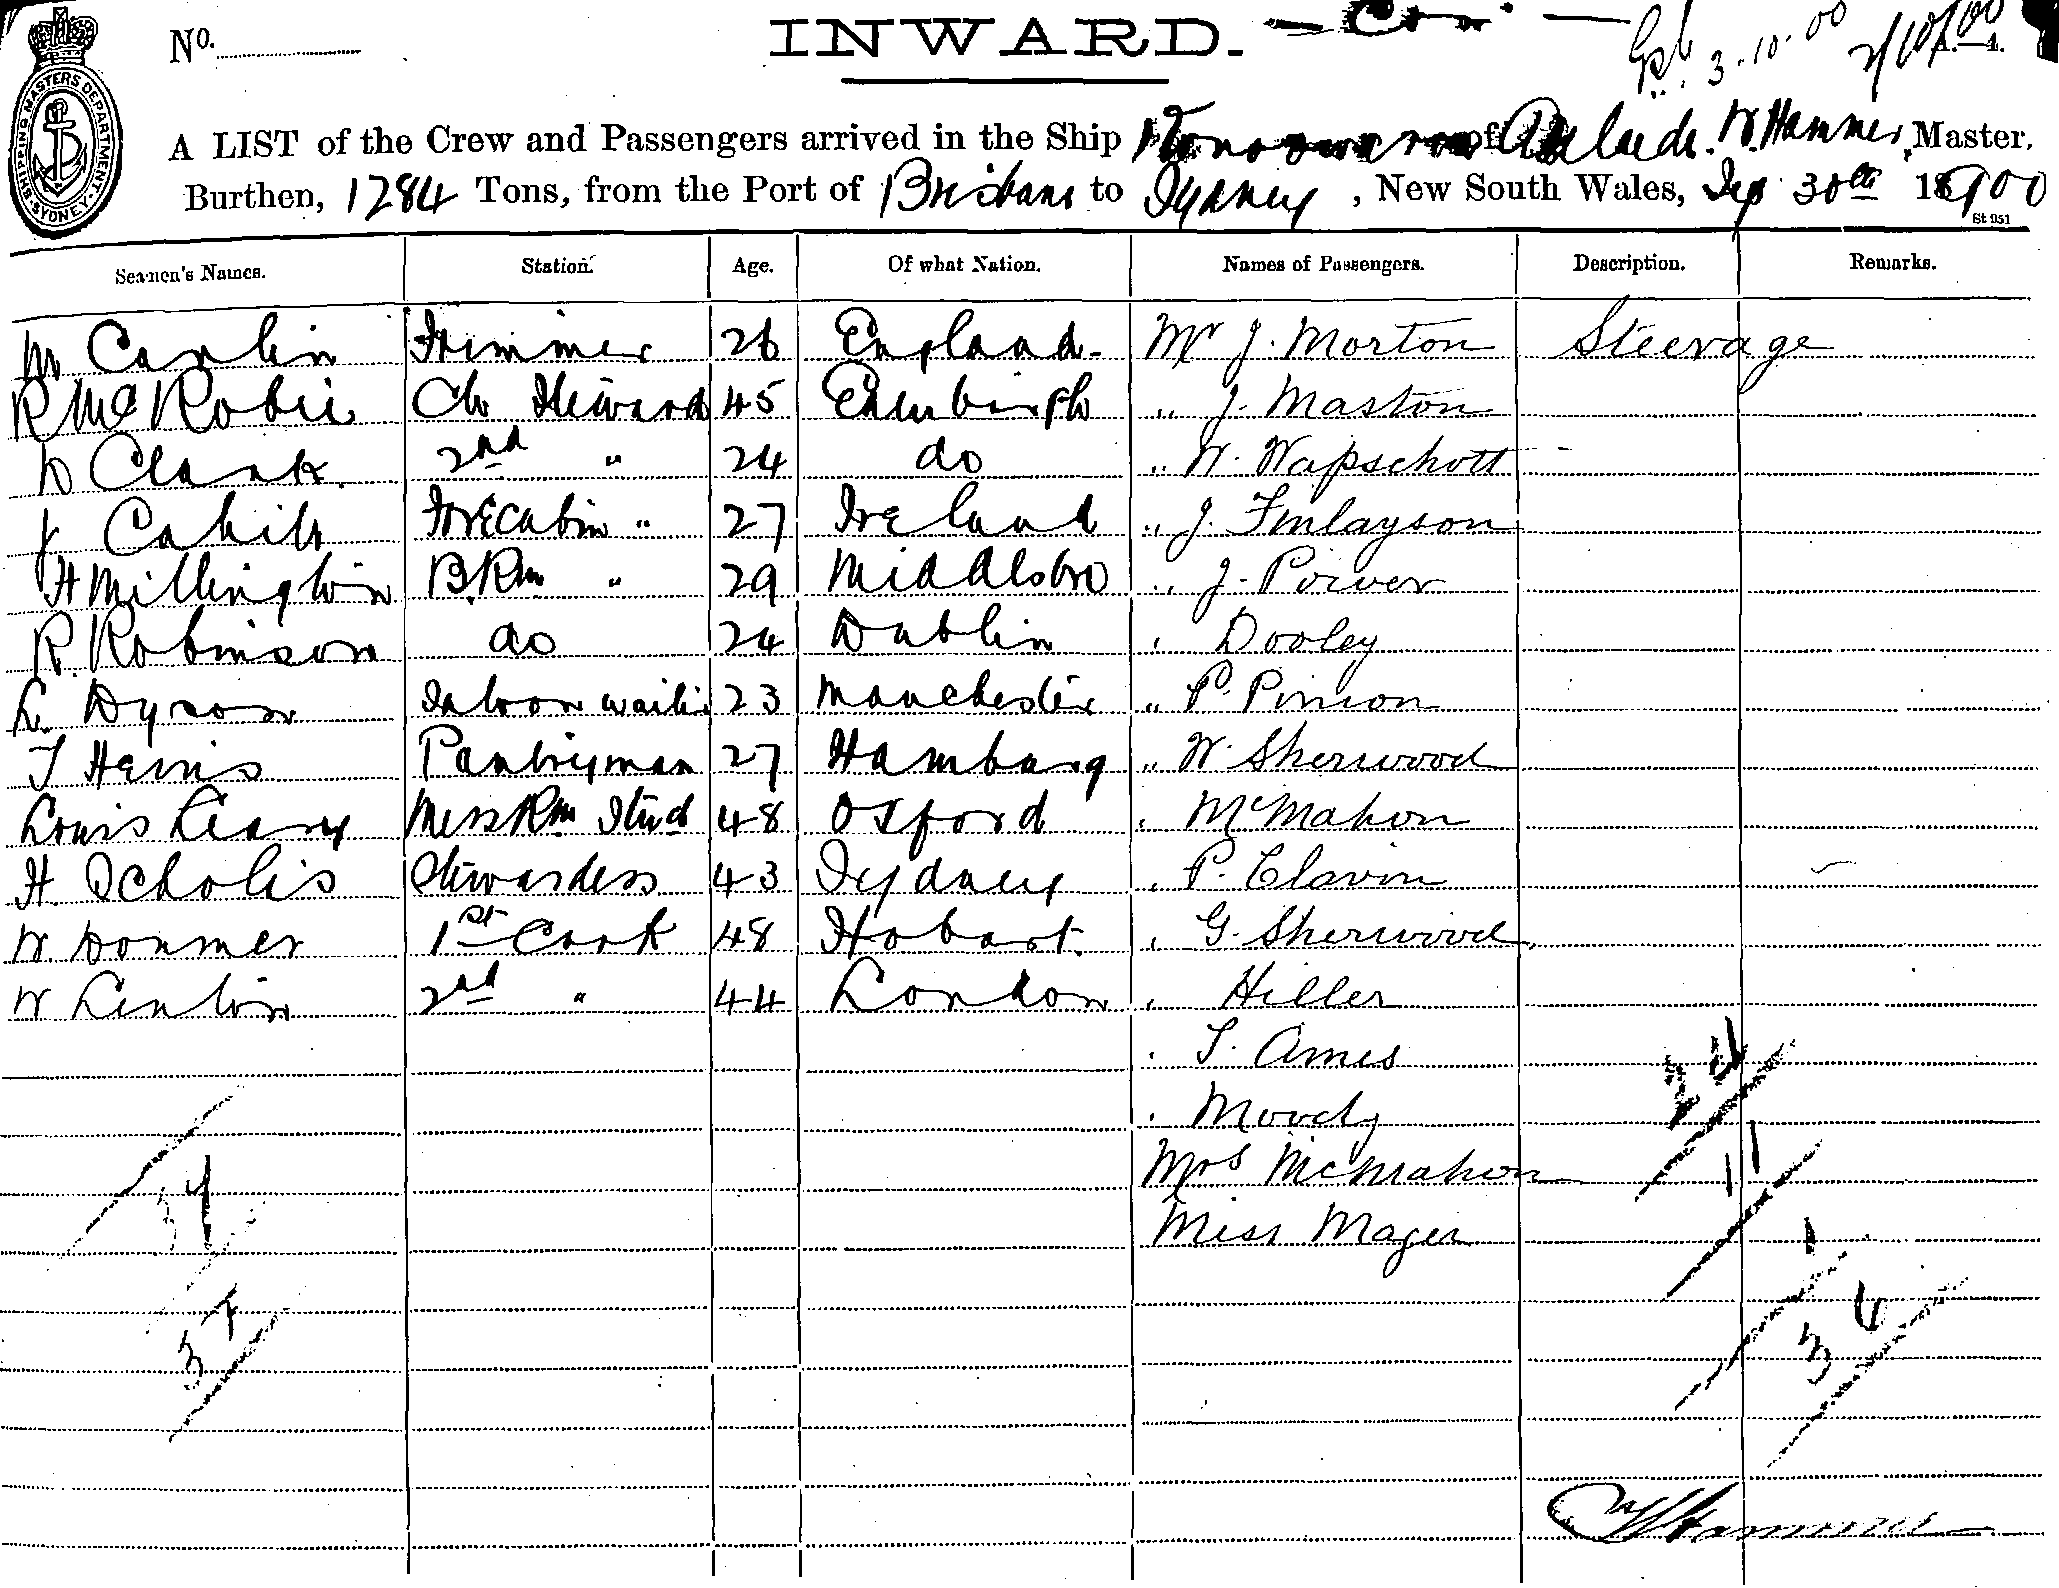 No.
INWARD.
3.10.00
2/10/00
SHIPPING MASTERS DEPARTMENT SYDNEY
A LIST of the Crew and Passengers arrived in the Ship of Adelaide. W. Hammer, Master.
Burthen, 1284 Tons, from the Port of Brisbane to Sydney, New South Wales, Sep 30th 1900
St 951
Seamen's Names. Station. Age. Of what Nation. Names of Passengers. Description. Remarks.
M Carlin Trimmer 26 England - Mr J. Morton Steerage
R McRobie Ch Steward 45 Edinburgh " J. Maston
D Clark 2nd " 24 do " W. Wapschott
J Cahill ForeCabin " 27 Ireland " J. Finlayson
H Millington B.Rm " 29 Middlesbro " J. Power
R. Robinson do 24 Dublin " Dooley
L. Dyson Saloon waiter 23 Manchester " P. Pinion
T Heins Pantryman 27 Hamburg " W. Sherwood
Louis Leary Mess Rm Stwd 48 Oxford " McMahon
H. Scholis Stewardess 43 Sydney " P. Clavin
W. Donmer 1st Cook 48 Hobart. " G. Sherwood
W Lenton 2nd " 44 London " Hiller
" T. Ames
" Moody
Mrs McMahon
Miss Mager
24
11
1
36
34
37
W Hammer